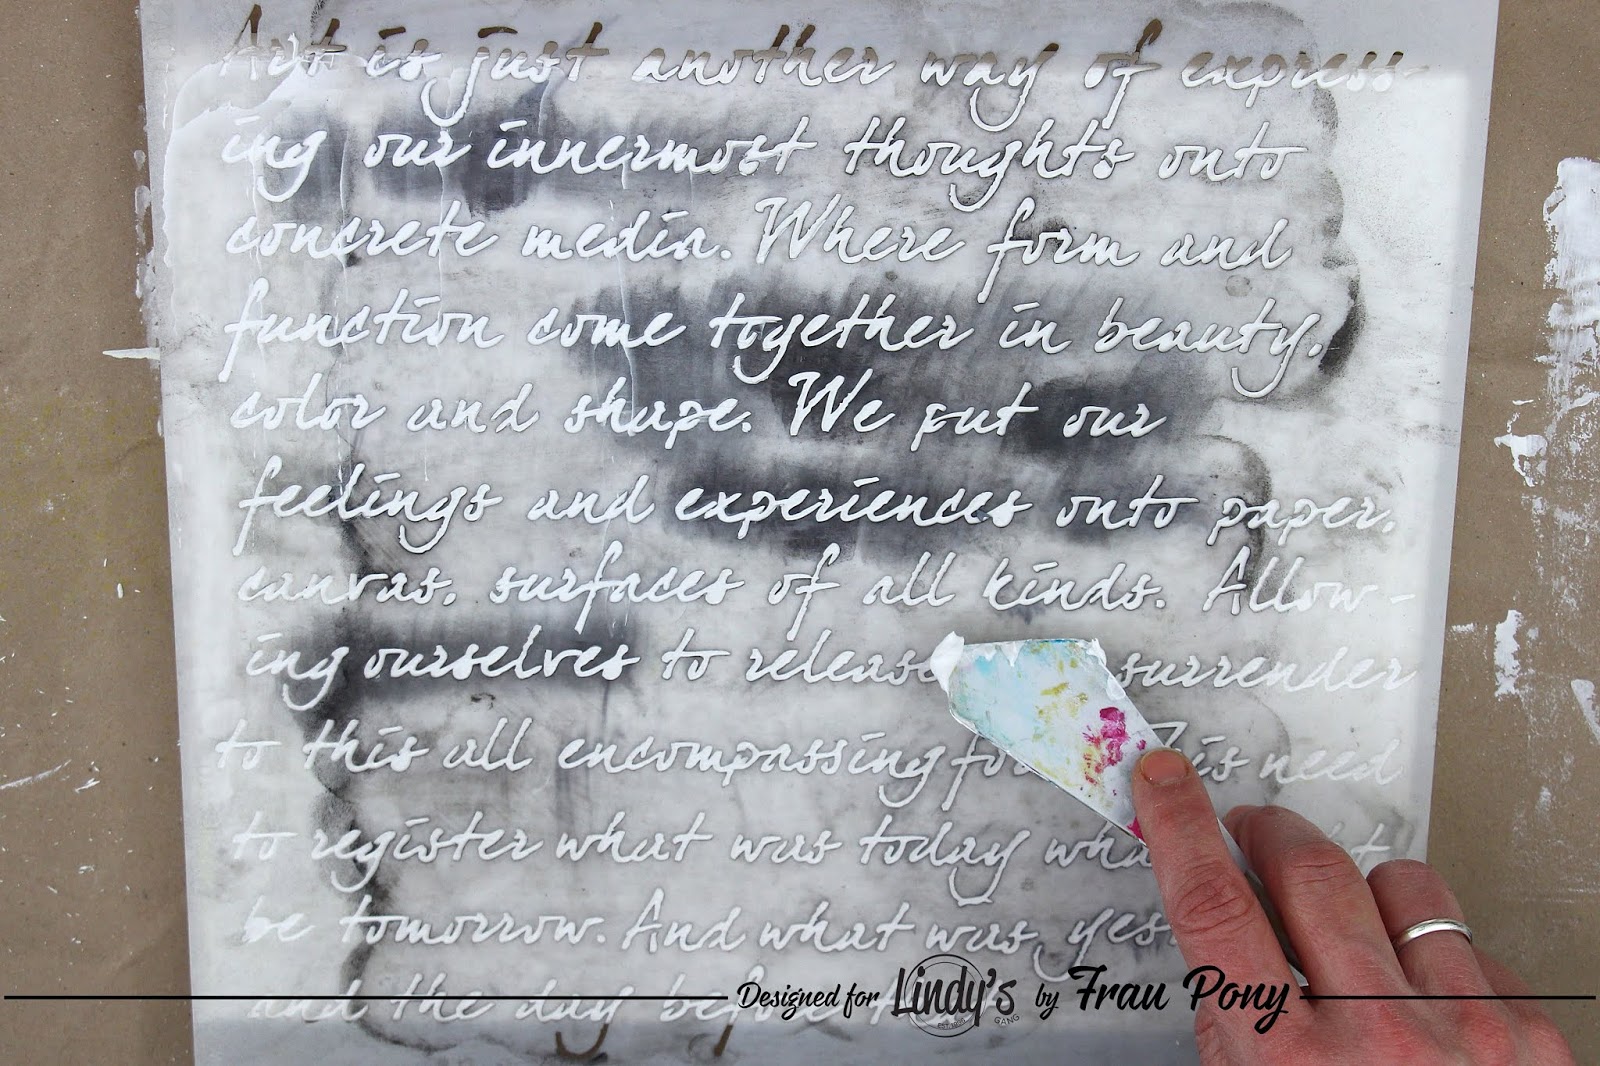 Art is just another way of express-
ing our innermost thoughts onto
concrete media. Where form and
function come together in beauty,
color and shape. We put our
feelings and experiences onto paper,
canvas, surfaces of all kinds. Allow-
ing ourselves to release surrender
to this all encompassing need
to register what was today
be tomorrow. And what was
and the day before
Designed for Lindy's GANG by Frau Pony